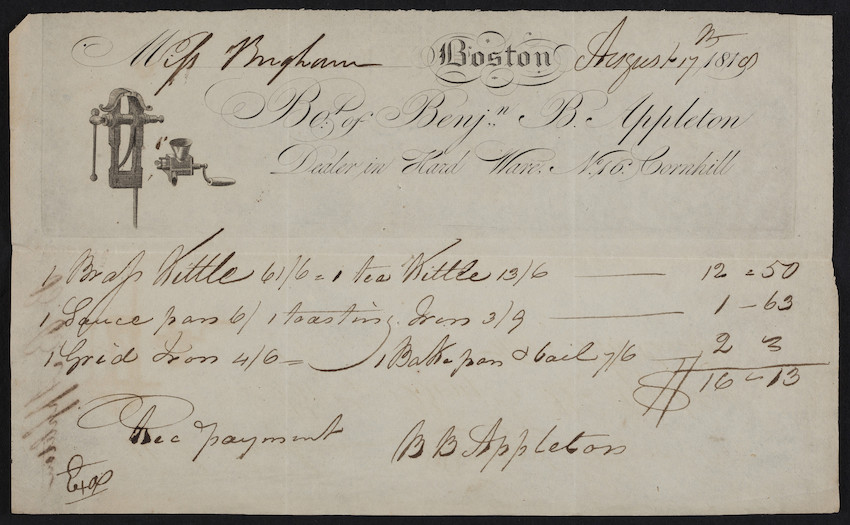 Miss Brigham Boston August 17th 1819
Bot. of Benjn. B. Appleton
Dealer in Hard Ware. No. 16. Cornhill
1 Brass Kittle 61/6 = 1 tea Kittle 13/6 — 12 = 50
1 Sauce pan 6/ 1 toasting Iron 3/9 — 1 – 63
1 Grid Iron 4/6 = 1 Bake pan & bail 7/6 — 2 3
$16 – 13
Rec payment B B Appleton